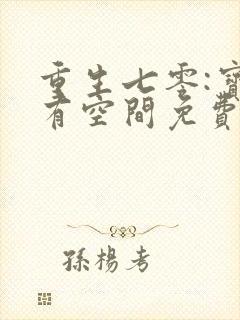 重生七零:寶
有空間免費
孫楊考